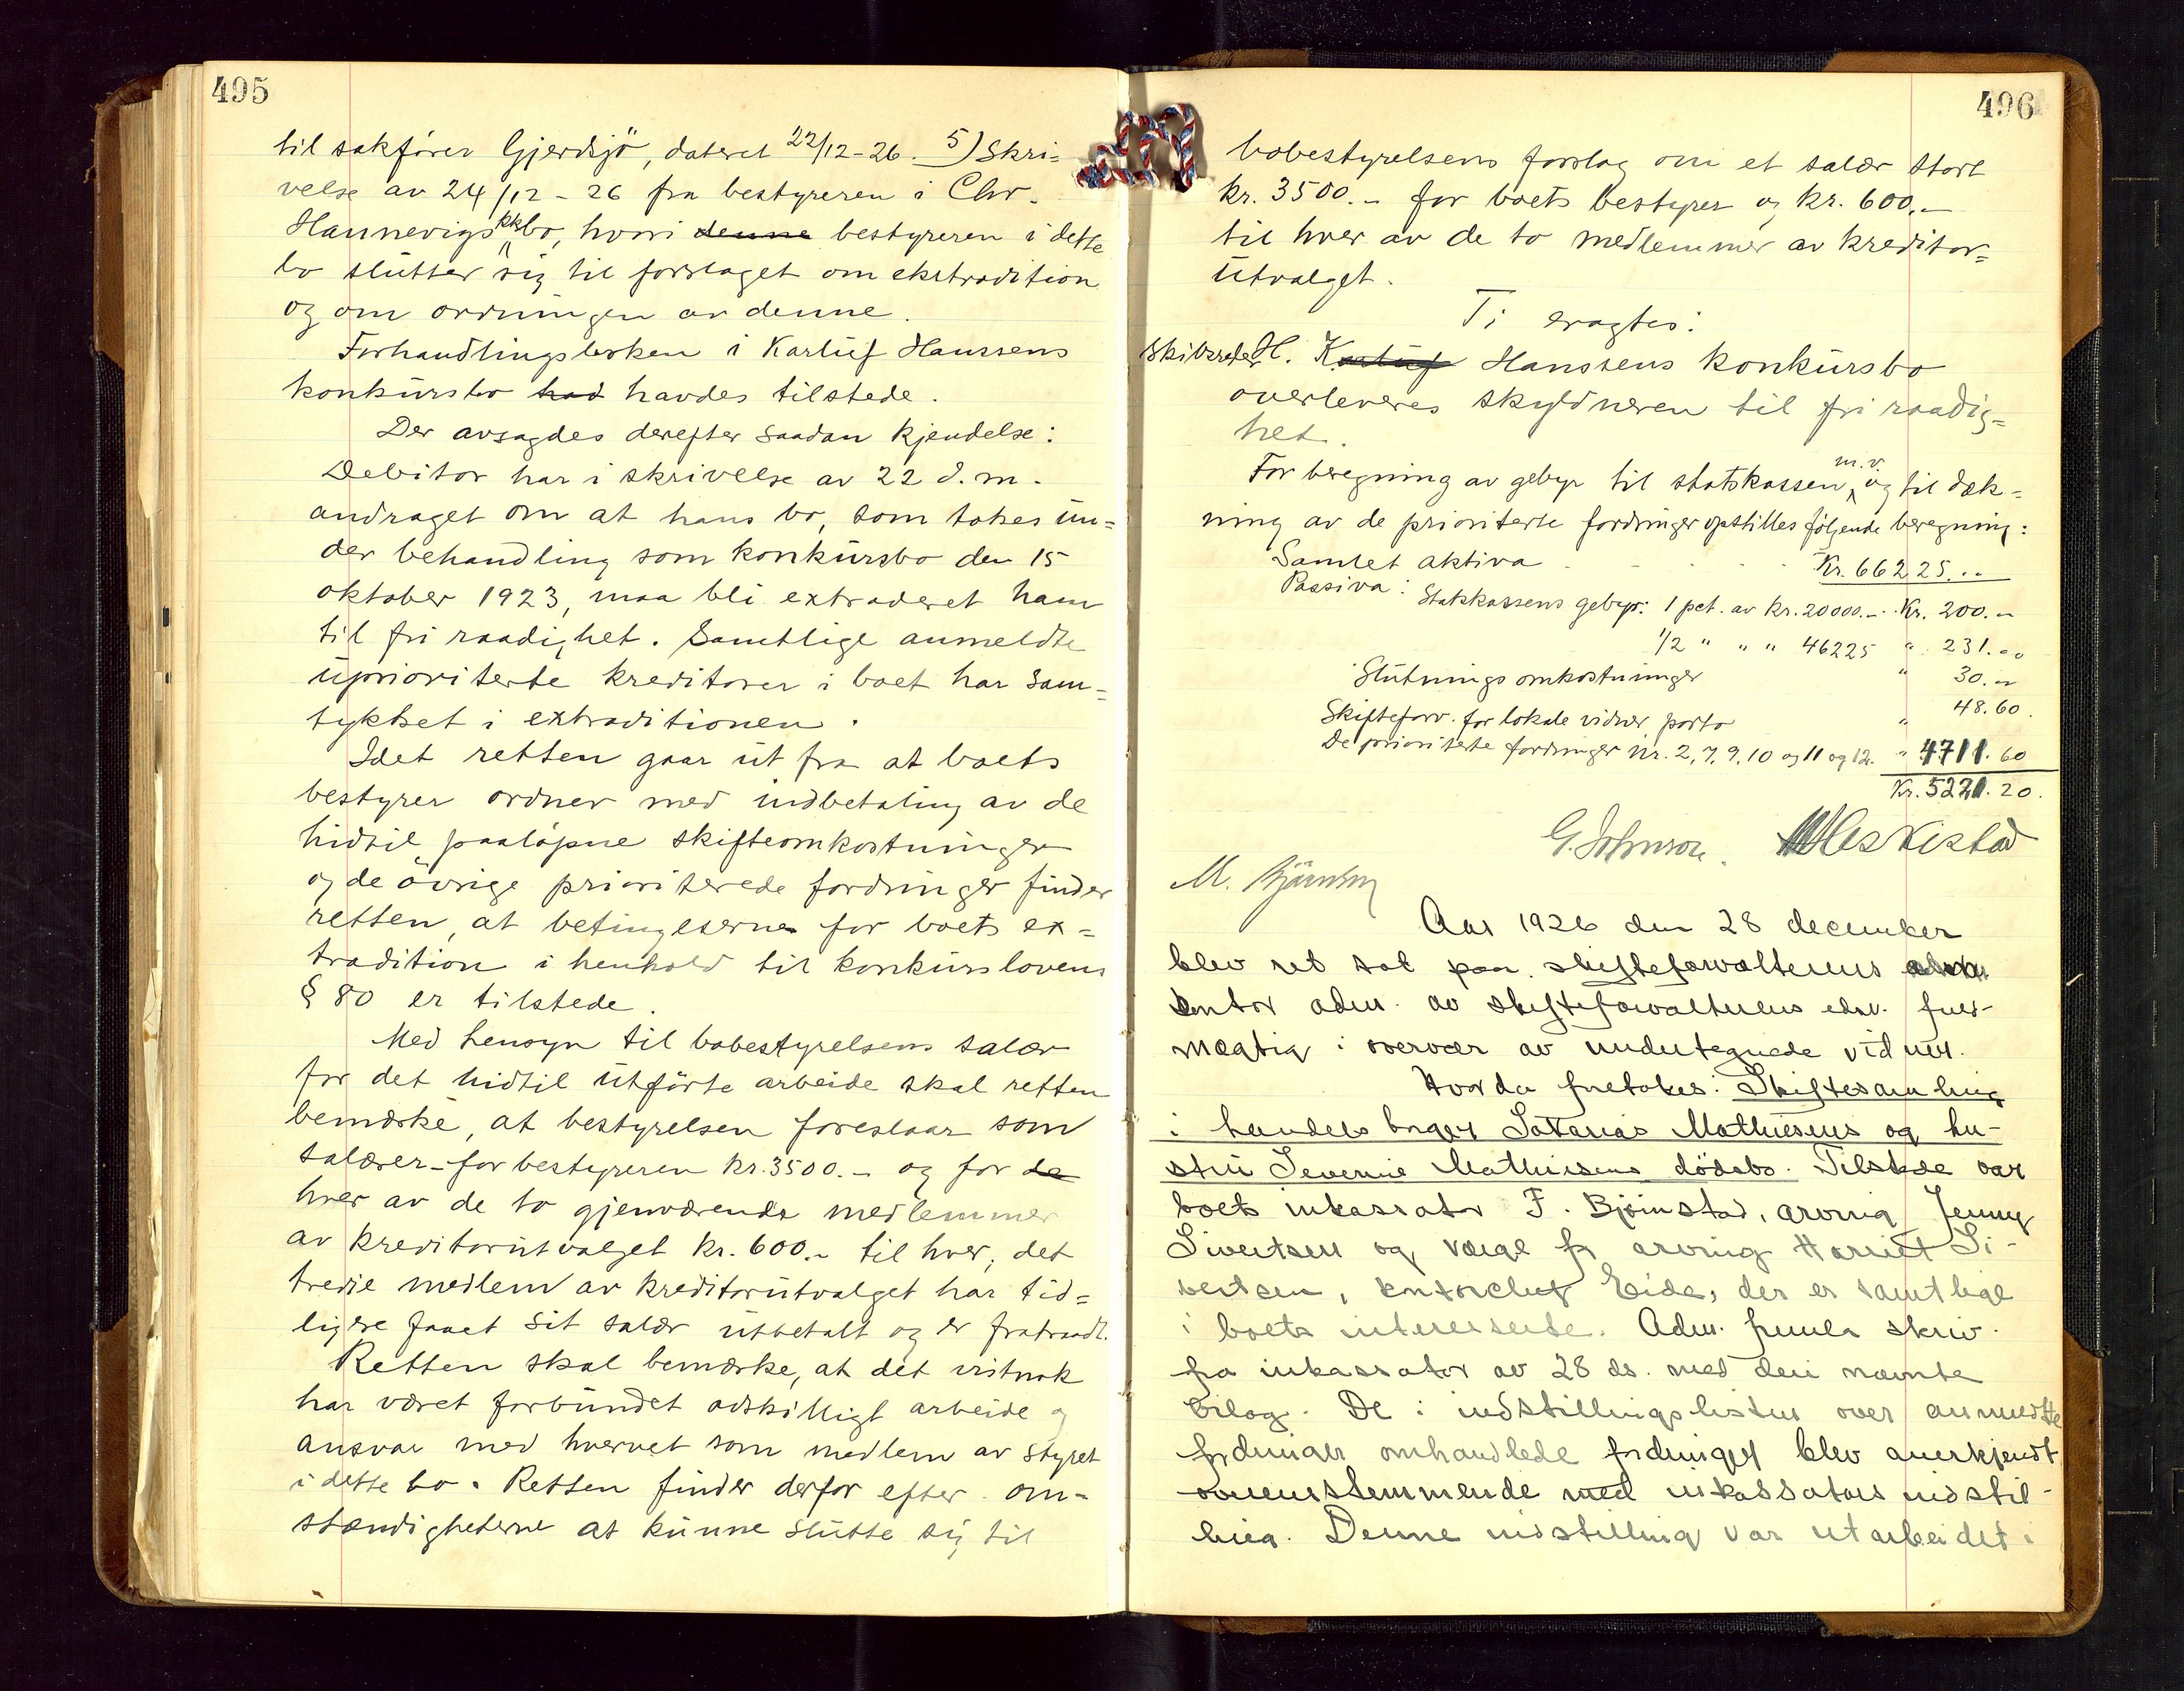 495
til sakfører Gjerdsjö, dateret 22/12-26. 5) Skri=
velse av 24/12-26 fra bestyreren i Chr.
Hannevigs kk bo, hvori denne bestyreren i dette
bo slutter sig til forslaget om ekstradition
og om ordningen av denne.
Forhandlingsboken i Karluf Hanssens
konkursbo had havdes tilstede.
Der avsagdes derefter saadan kjendelse:
Debitor har i skrivelse av 22 d.m.
andraget om at hans bo, som tokes un=
der behandling som konkursbo den 15
oktober 1923, maa bli extraderet ham
til fri raadighet. Samtlige anmeldte
uprioriterte kreditorer i boet har sam=
tykket i extraditionen.
Idet retten gaar ut fra at boets
bestyrer ordner med indbetaling av de
hidtil paaløpne skifteomkostninger
og de övrige prioriterede fordringer finder
retten, at betingelserne for boets ex=
tradition i henhold til konkurslovens
§ 80 er tilstede.
Med hensyn til bobestyrelsens salær
for det hidtil utførte arbeide skal retten
bemærke, at bestyrelsen foreslaar som
salærer for bestyreren kr. 3500.- og for de
hver av de to gjenværende medlemmer
av kreditorutvalget kr. 600.- til hver, det
tredie medlem av kreditorutvalget har tid=
ligere faaet sit salær utbetalt og er fratraadt.
Retten skal bemærke, at det vistnok
har været forbundet adskilligt arbeide og
ansvar med hvervet som medlem av styret
i dette bo. Retten finder derfor efter om=
stændigheterne at kunne slutte sig til
496
bobestyrelsens forslag om et salær stort
kr. 3500.- for boets bestyrer og kr. 600.-
til hver av de to medlemmer av kreditor=
utvalget.
Ti eragtes:
Skibsreder H. Karluf Hanssens konkursbo
overleveres skyldneren til fri raadig=
het.
For beregning av gebyr til statskassen m.v. og til dæk=
ning av de prioriterte fordringer opstilles følgende beregning:
Samlet aktiva Kr. 66225.--
Passiva: Statskassens gebyr: 1 pct. av kr. 20000.- Kr. 200.-
1/2 " " " 46225 " 231.00
Slutnings omkostninger " 30.-
Skifteforv. for lokale vidner porto " 48.60
De prioriterte fordringer nr. 2, 7, 9, 10 og 11 og 12. " 4711.60
Kr. 5221.20.
G. Johnson.
M.
Aar 1926 den 28 december
blev ret sat paa skifteforvalterens
kontor adm. av skifteforvalterens edsv. fuld-
mægtig i overvær av undertegnede vidner.
Hvorda foretokes: Skiftesamling
i handelsborger Satanias Mathiesens og hu-
stru Severine Mathiesens dödsbo. Tilstede var
boets inkassator F. Björnstad, arving Jenny
Sivertsen og værge for arving Harriet Si-
vertsen, kontorchef Eide, der er samtlige
i boets interesserte. Adm. fremla skriv.
fra inkassator av 28 ds. med deri nævnte
bilag. De i indstillingslisten over anmeldte
fordringer omhandlede fordringer blev anerkjendt
overensstemmende med inkassators indstil-
ling. Denne indstilling var utarbeidet i